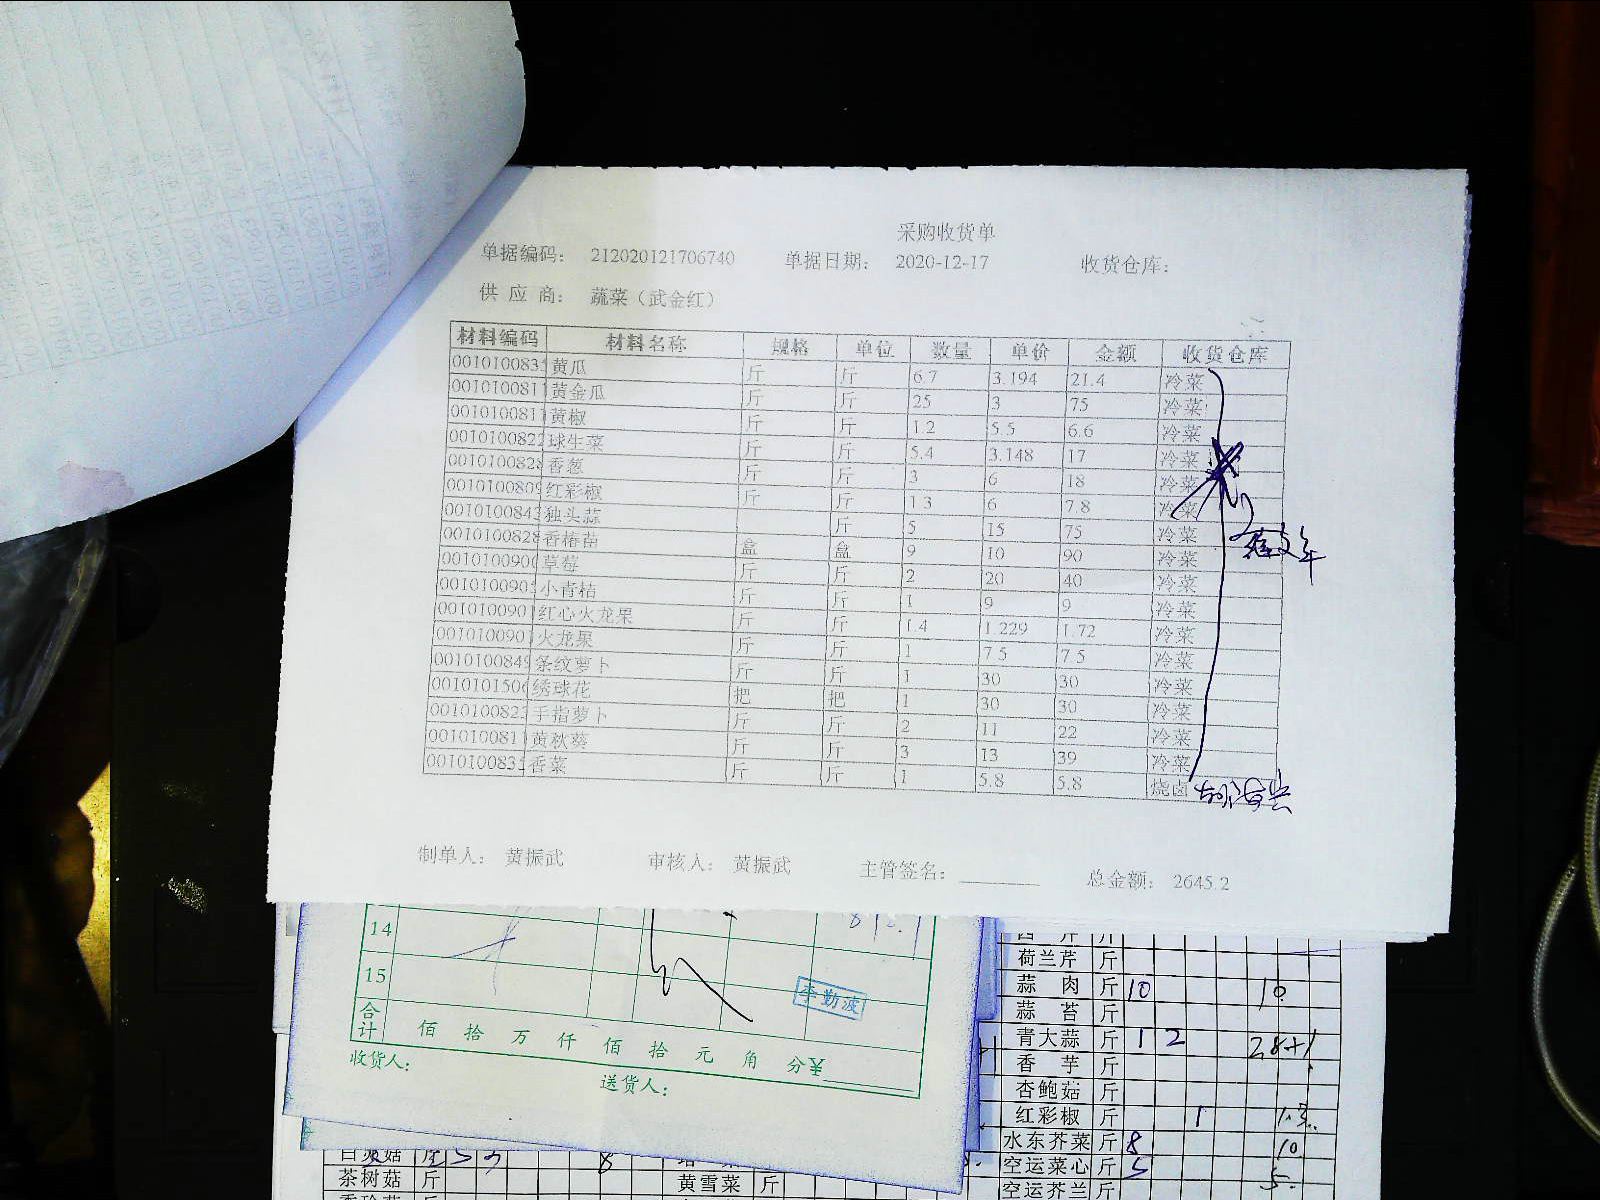 采购收货单
单据编码： 212020121706740 单据日期： 2020-12-17 收货仓库：
供 应 商： 蔬菜（武金红）
材料编码 材料名称 规格 单位 数量 单价 金额 收货仓库
001010083 黄瓜 斤 斤 6.7 3.194 21.4 冷菜
001010081 黄金瓜 斤 斤 25 3 75 冷菜
001010081 黄椒 斤 斤 1.2 5.5 6.6 冷菜
001010082 球生菜 斤 斤 5.4 3.148 17 冷菜
001010082 香葱 斤 斤 3 6 18 冷菜
001010080 红彩椒 斤 斤 1.3 6 7.8 冷菜
001010084 独头蒜 斤 5 15 75 冷菜
001010082 香椿苗 盒 盒 9 10 90 冷菜
001010090 草莓 斤 斤 2 20 40 冷菜
001010090 小青桔 斤 斤 1 9 9 冷菜
001010090 红心火龙果 斤 斤 1.4 1.229 1.72 冷菜
001010090 火龙果 斤 斤 1 7.5 7.5 冷菜
001010084 条纹萝卜 斤 斤 1 30 30 冷菜
001010150 绣球花 把 把 1 30 30 冷菜
001010082 手指萝卜 斤 斤 2 11 22 冷菜
001010081 黄秋葵 斤 斤 3 13 39 冷菜
001010083 香菜 斤 斤 1 5.8 5.8 烧卤
制单人： 黄振武 审核人： 黄振武 主管签名： 总金额： 2645.2
14
15 李勤波
合计 佰 拾 万 仟 佰 拾 元 角 分¥
收货人： 送货人：
荷兰芹 斤
蒜 肉 斤 10 10
蒜 苔 斤
青大蒜 斤 1 2 28+1
香 芋 斤
杏鲍菇 斤
红彩椒 斤 1
水东芥菜 斤 8 10
空运菜心 斤 5 5.
空运芥兰 斤
茶树菇 斤 黄雪菜 斤